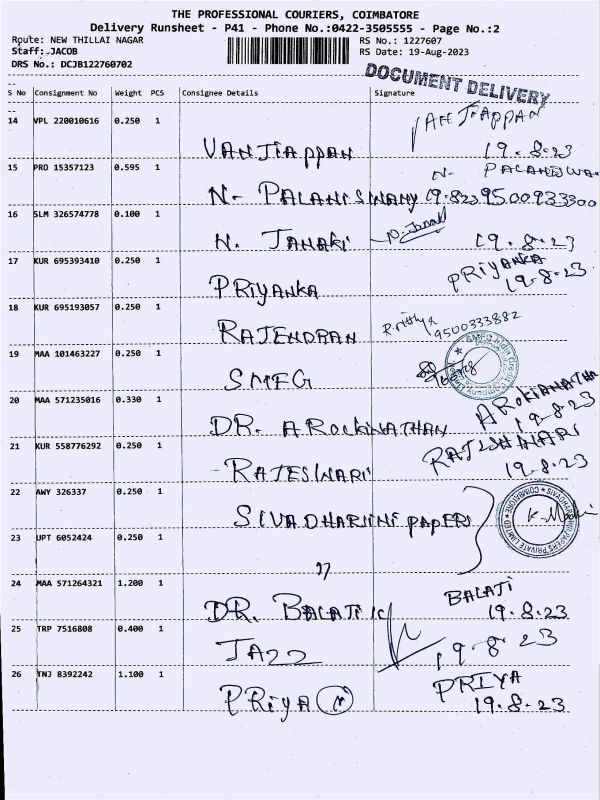 THE PROFESSIONAL COURIERS, COIMBATORE
Delivery Runsheet - P41 - Phone No.:0422-3505555 - Page No.:2
Route: NEW THILLAI NAGAR RS No.: 1227607
Staff:.JACOB RS Date: 19-Aug-2023
DRS No.: DCJB122760702
DOCUMENT DELIVERY
S No Consignment No Weight PCS Consignee Details Signature
14 VPL 220010616 0.250 1 VANJIAPPAN VANJIAPPAN 19.8.23
15 PRO 15357123 0.595 1 N- PALANISWAMY N- PALANISWA- 19.8.23 9500933300
16 SLM 326574778 0.100 1 N. JANAKI N. Janaki 19.8.23
17 KUR 695393410 0.250 1 PRIYANKA PRIYANKA 19.8.23
18 KUR 695193057 0.250 1 RAJENDRAN R.nithya 9500333882
19 MAA 101463227 0.250 1 SMFG
20 MAA 571235016 0.330 1 DR. AROCKINATHAN AROKIANATHA 19.8.23
21 KUR 558776292 0.250 1 RAJESWARI RAJESWARI 19.8.23
22 AWY 326337 0.250 1 SIVADHARSHINI PAPERS
23 UPT 6052424 0.250 1 "
24 MAA 571264321 1.200 1 DR. BALAJI K BALAJI 19.8.23
25 TRP 7516808 0.400 1 JAZZ 19.8.23
26 TNJ 8392242 1.100 1 PRIYA PRIYA 19.8.23